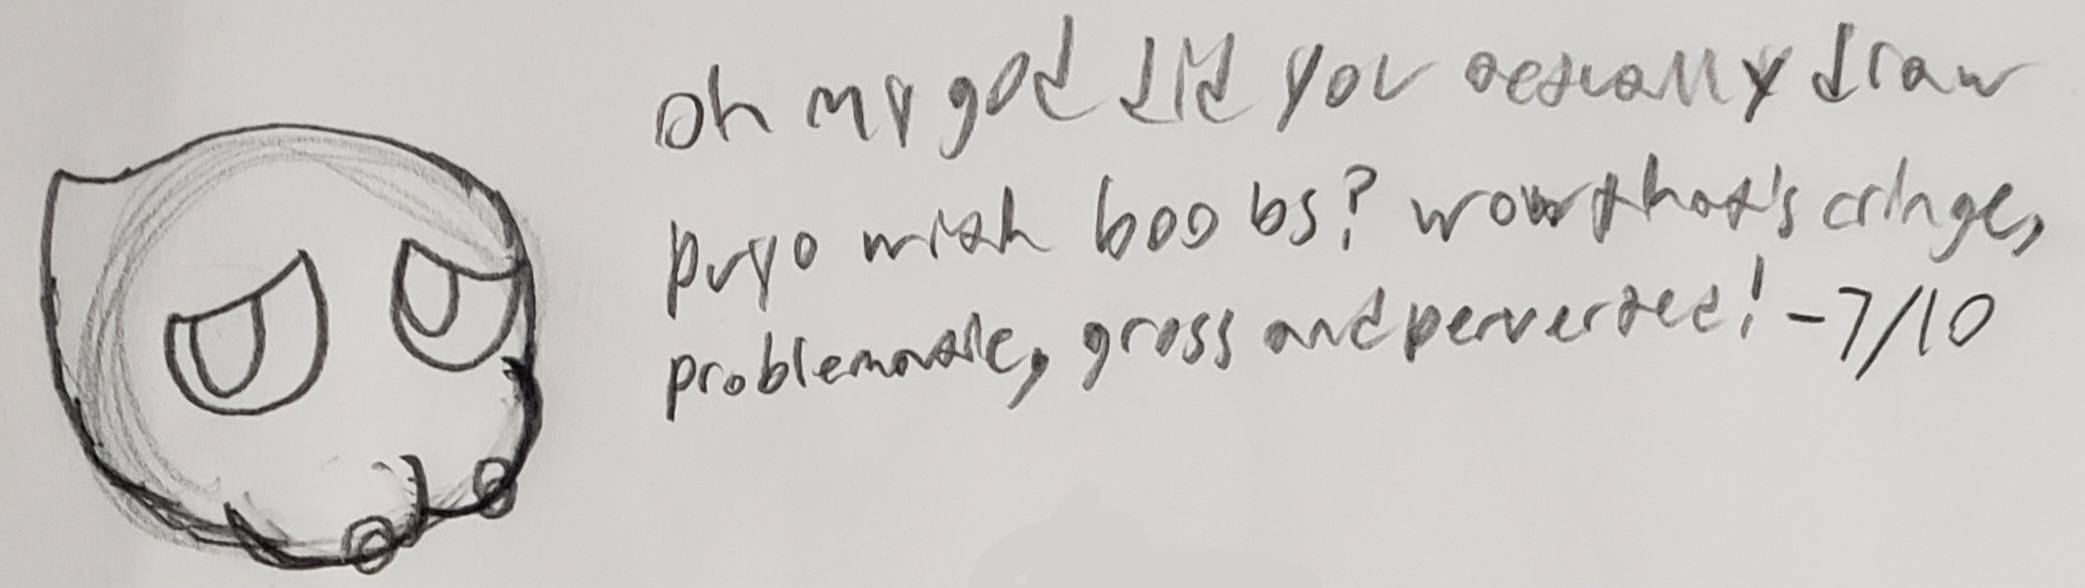 oh my god did you actually draw
puyo with boobs? wow that's cringe,
problematic, gross and perverted! -7/10